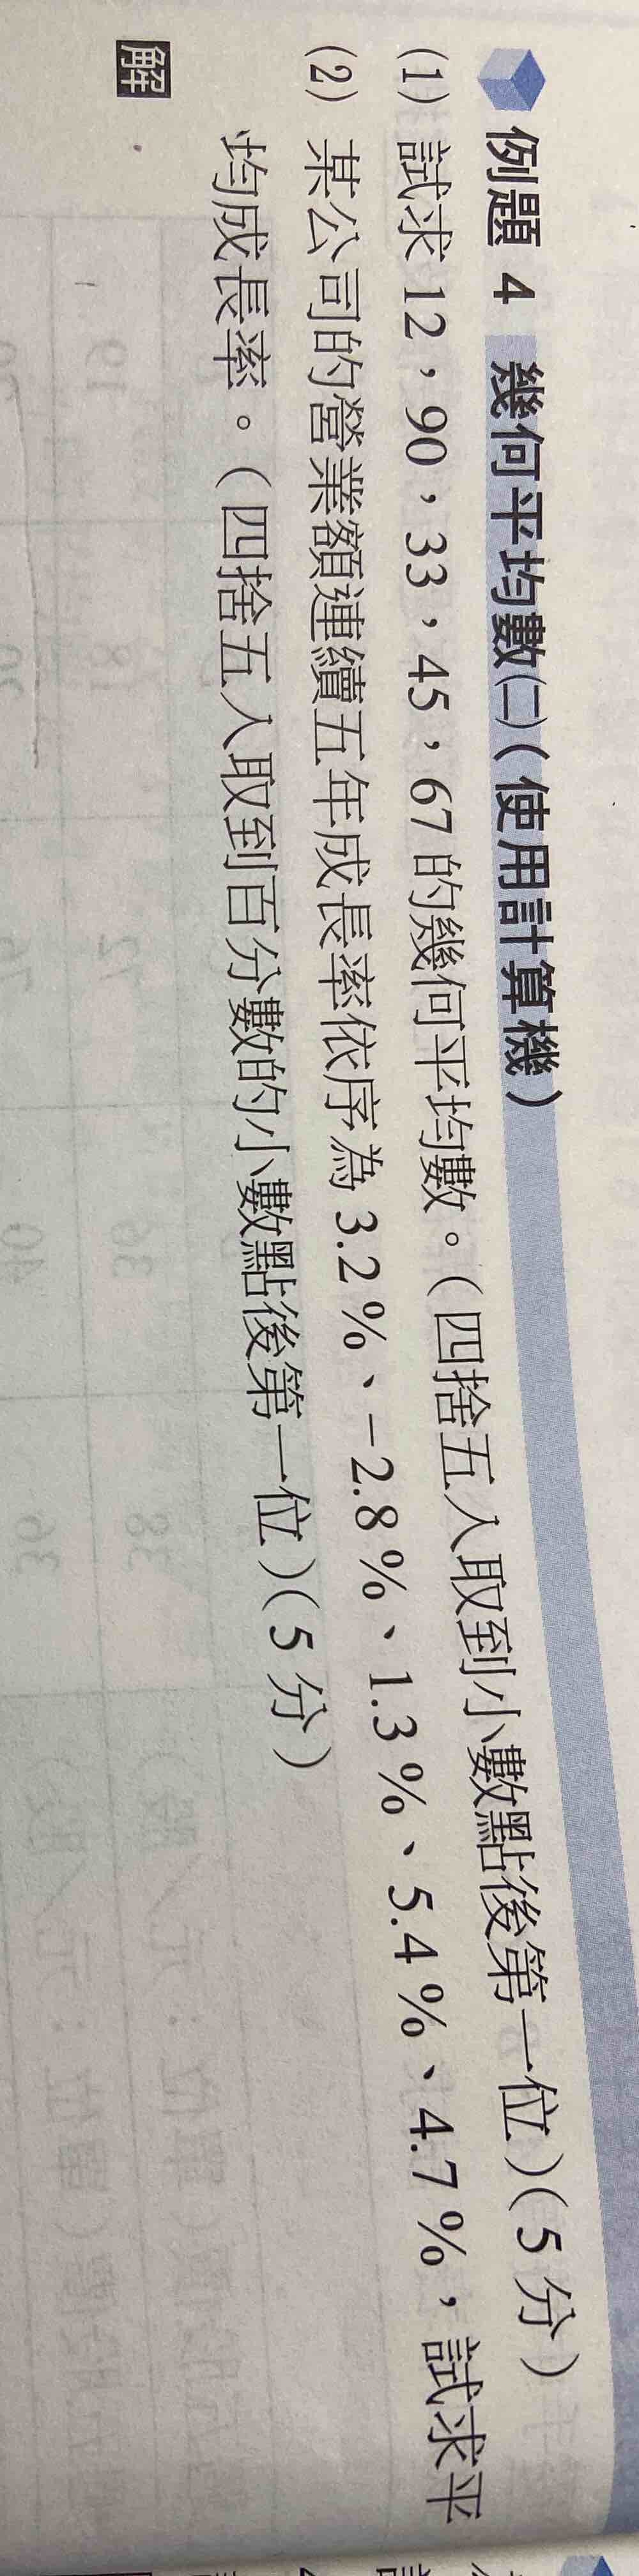 例題 4 幾何平均數㈡(使用計算機)
(1) 試求 12,90,33,45,67 的幾何平均數。(四捨五入取到小數點後第一位)(5 分)
(2) 某公司的營業額連續五年成長率依序為 3.2%、-2.8%、1.3%、5.4%、4.7%,試求平
均成長率。(四捨五入取到百分數的小數點後第一位)(5 分)
解